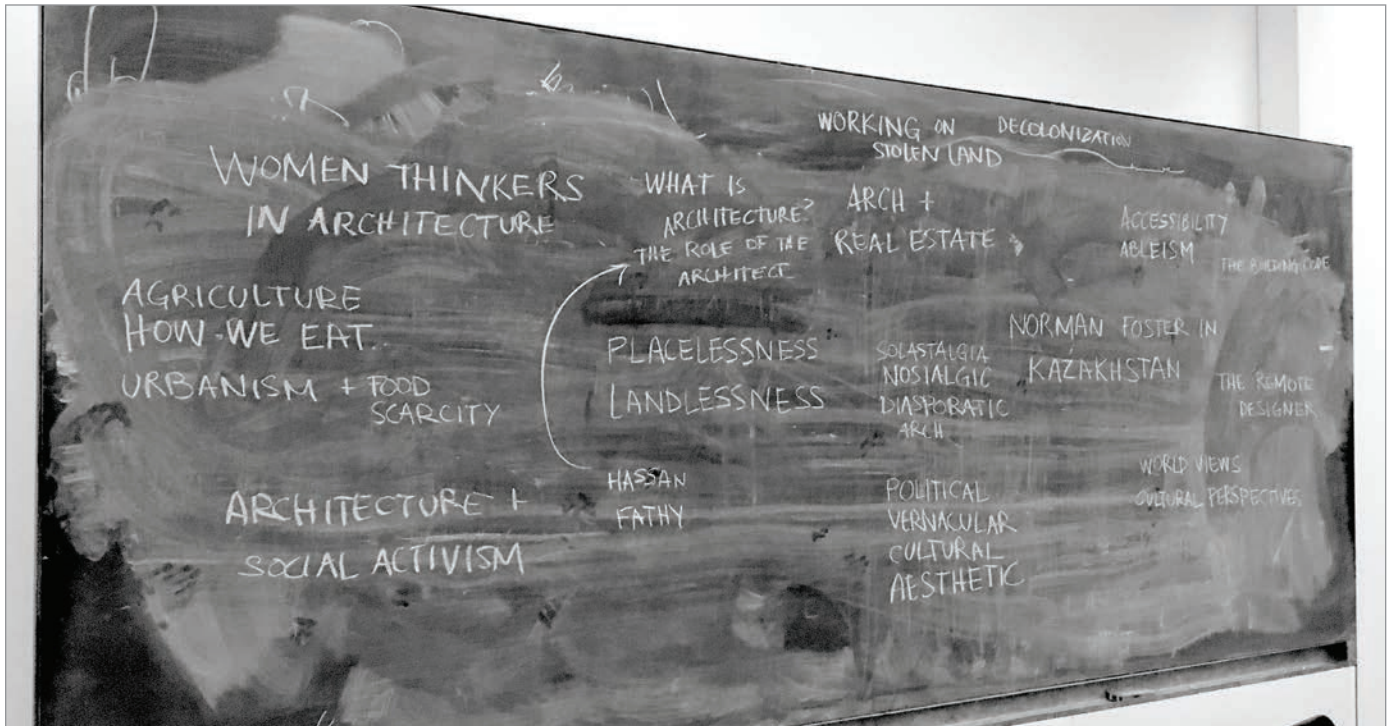 WOMEN THINKERS
IN ARCHITECTURE
AGRICULTURE
HOW WE EAT..
URBANISM + FOOD
SCARCITY
ARCHITECTURE +
SOCIAL ACTIVISM
WHAT IS
ARCHITECTURE?
THE ROLE OF THE
ARCHITECT
PLACELESSNESS
LANDLESSNESS
HASSAN
FATHY
WORKING ON DECOLONIZATION
STOLEN LAND
ARCH +
REAL ESTATE
SOLASTALGIA
NOSTALGIC
DIASPORATIC
ARCH
POLITICAL
VERNACULAR
CULTURAL
AESTHETIC
ACCESSIBILITY
ABLEISM
THE BUILDING CODE
NORMAN FOSTER IN
KAZAKHSTAN
THE REMOTE
DESIGNER
WORLD VIEWS
CULTURAL PERSPECTIVES